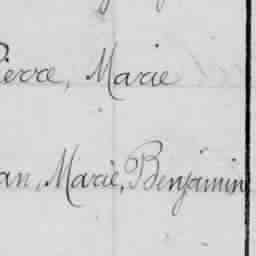 ierre, Marie
an, Marie, Benjamin